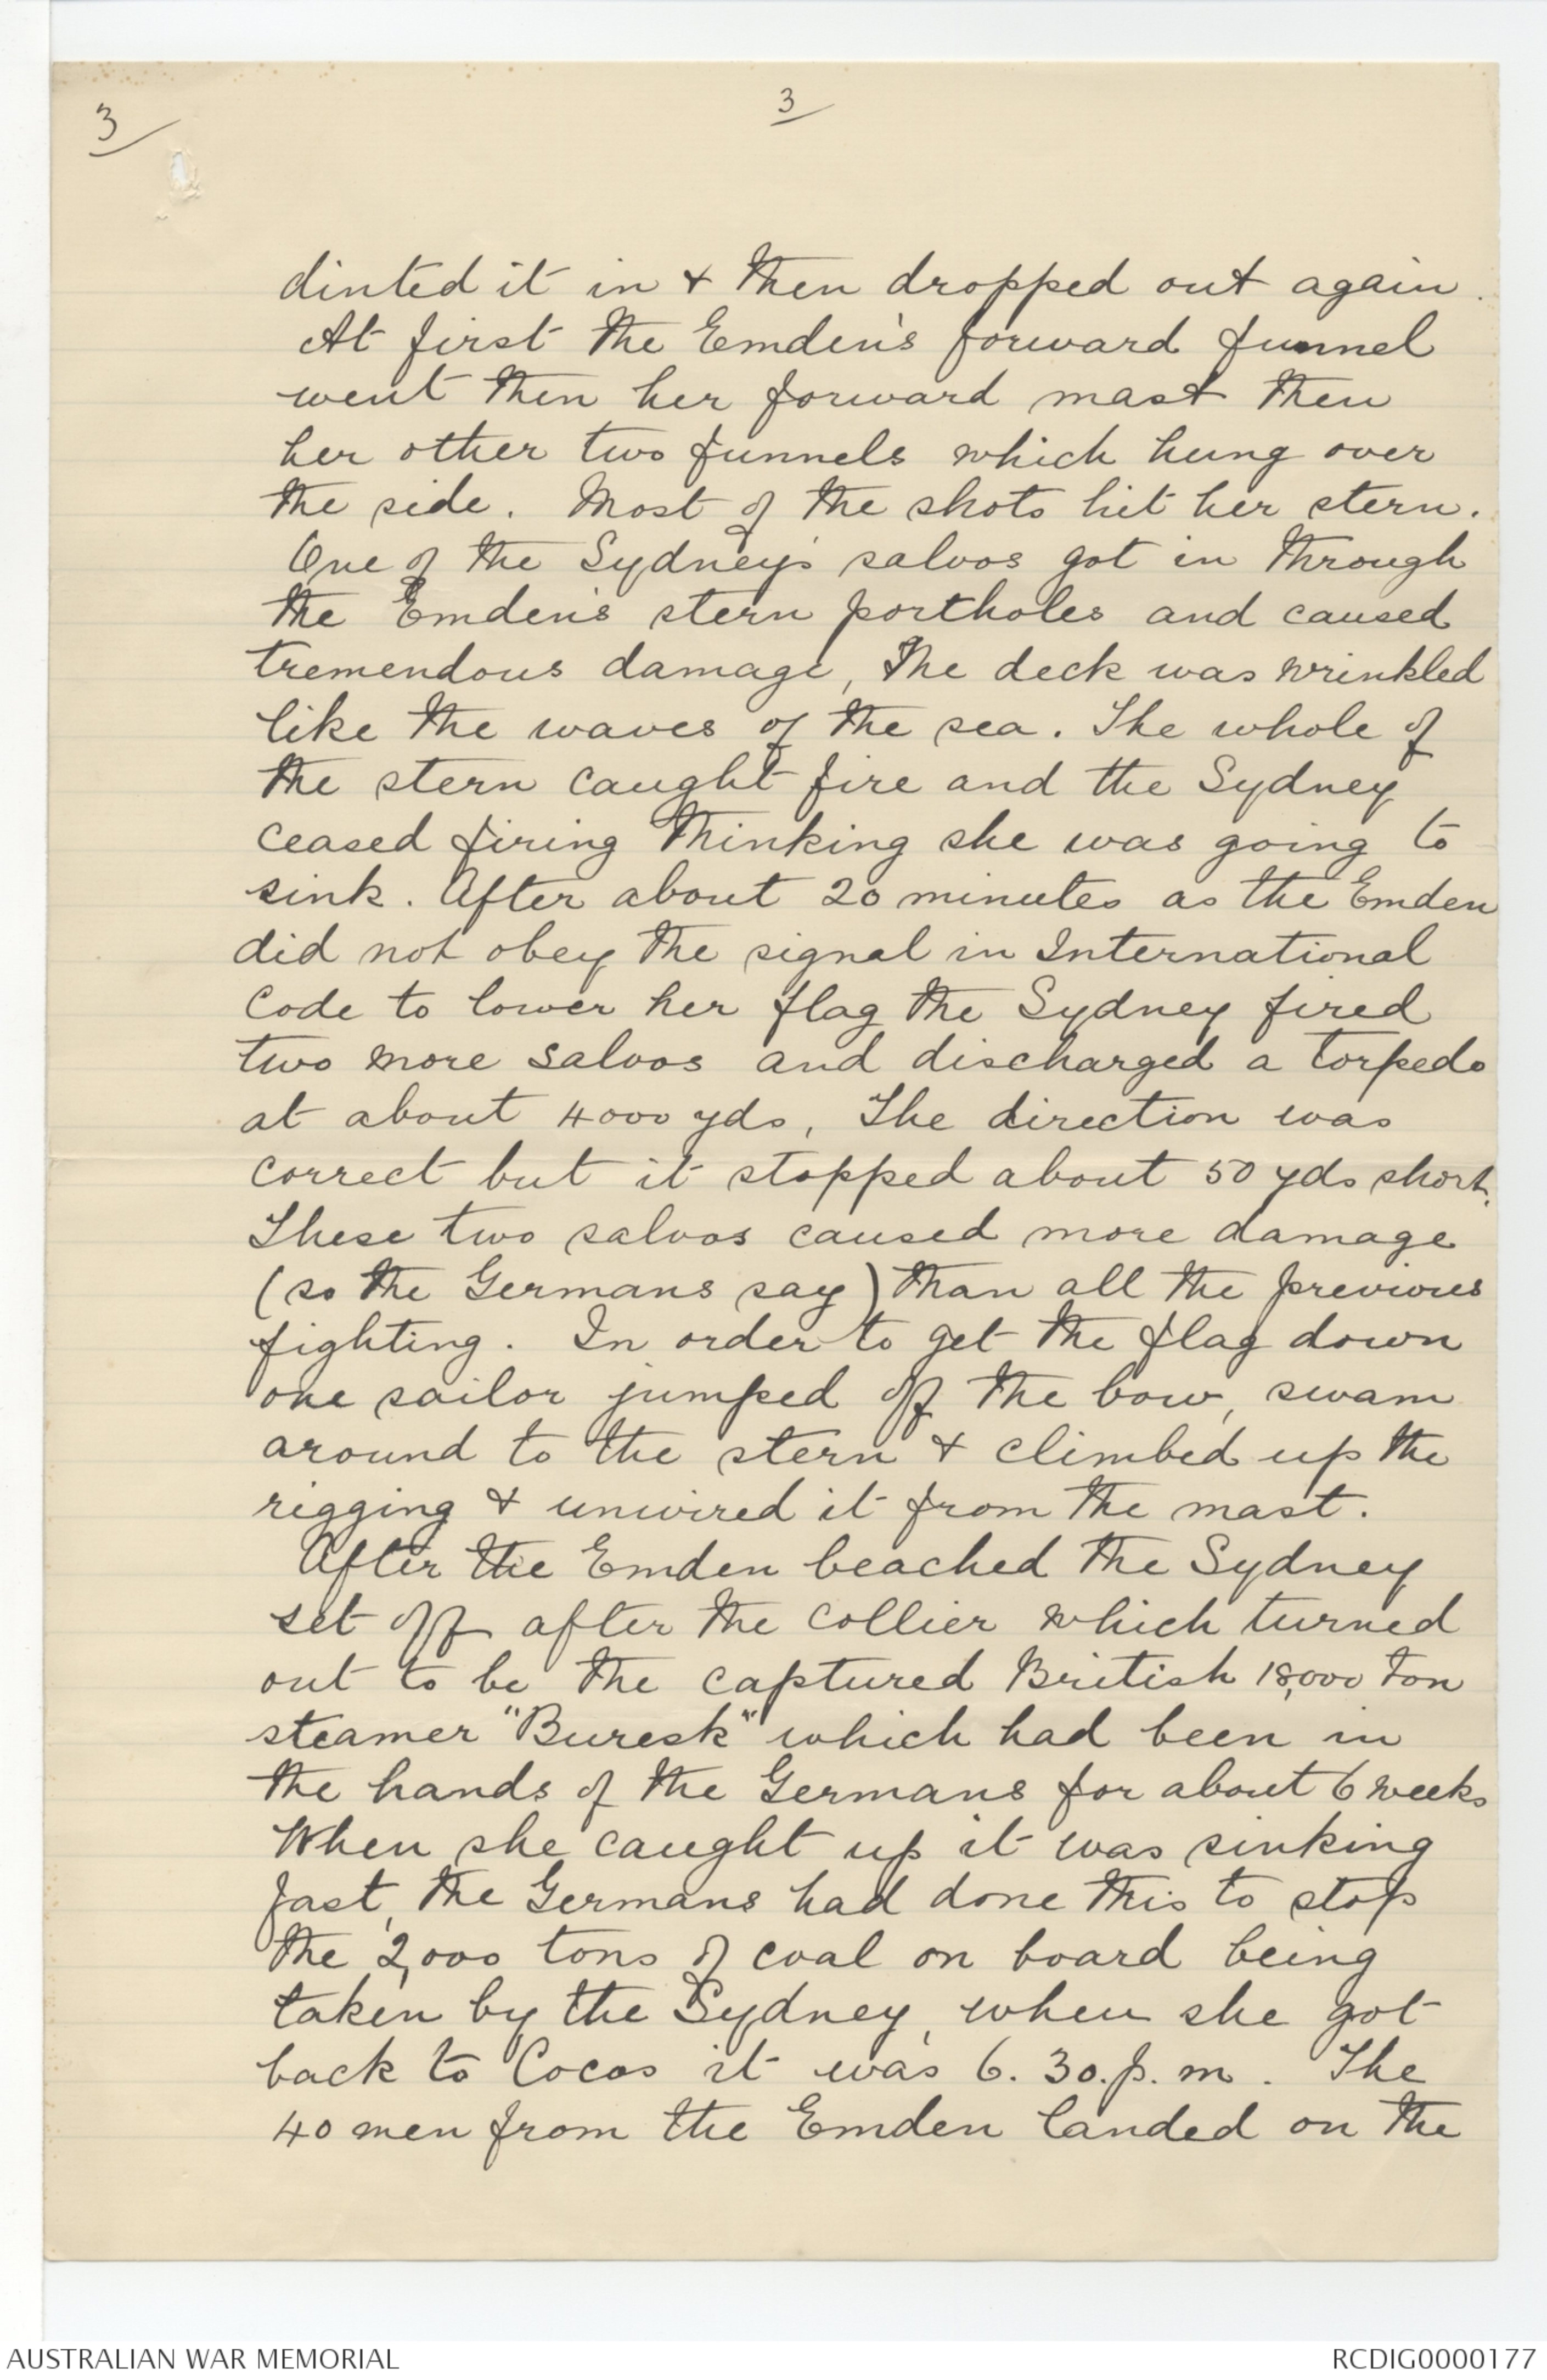 3
3
dinted it in & then dropped out again.
At first the Emden's forward funnel
went then her forward mast then
her other two funnels which hung over
the side. Most of the shots hit her stern.
One of the Sydney's salvos got in through
the Emden's stern portholes and caused
tremendous damage, The deck was wrinkled
like the waves of the sea. The whole of
the stern caught fire and the Sydney
ceased firing thinking she was going to
sink. After about 20 minutes as the Emden
did not obey the signal in International
Code to lower her flag the Sydney fired
two more salvos and discharged a torpedo
at about 4000 yds, The direction was
correct but it stopped about 50 yds short.
These two salvos caused more damage
(so the Germans say) than all the previous
fighting. In order to get the flag down
one sailor jumped off the bow, swam
around to the stern & climbed up the
rigging & unwired it from the mast.
After the Emden beached the Sydney
set off after the collier which turned
out to be the captured British 18,000 ton
steamer "Buresk" which had been in
the hands of the Germans for about 6 weeks
When she caught up it was sinking
fast, the Germans had done this to stop
the 2,000 tons of coal on board being
taken by the Sydney, when she got
back to Cocos it was 6.30.p.m. The
40 men from the Emden landed on the
AUSTRALIAN WAR MEMORIAL
RCDIG0000177